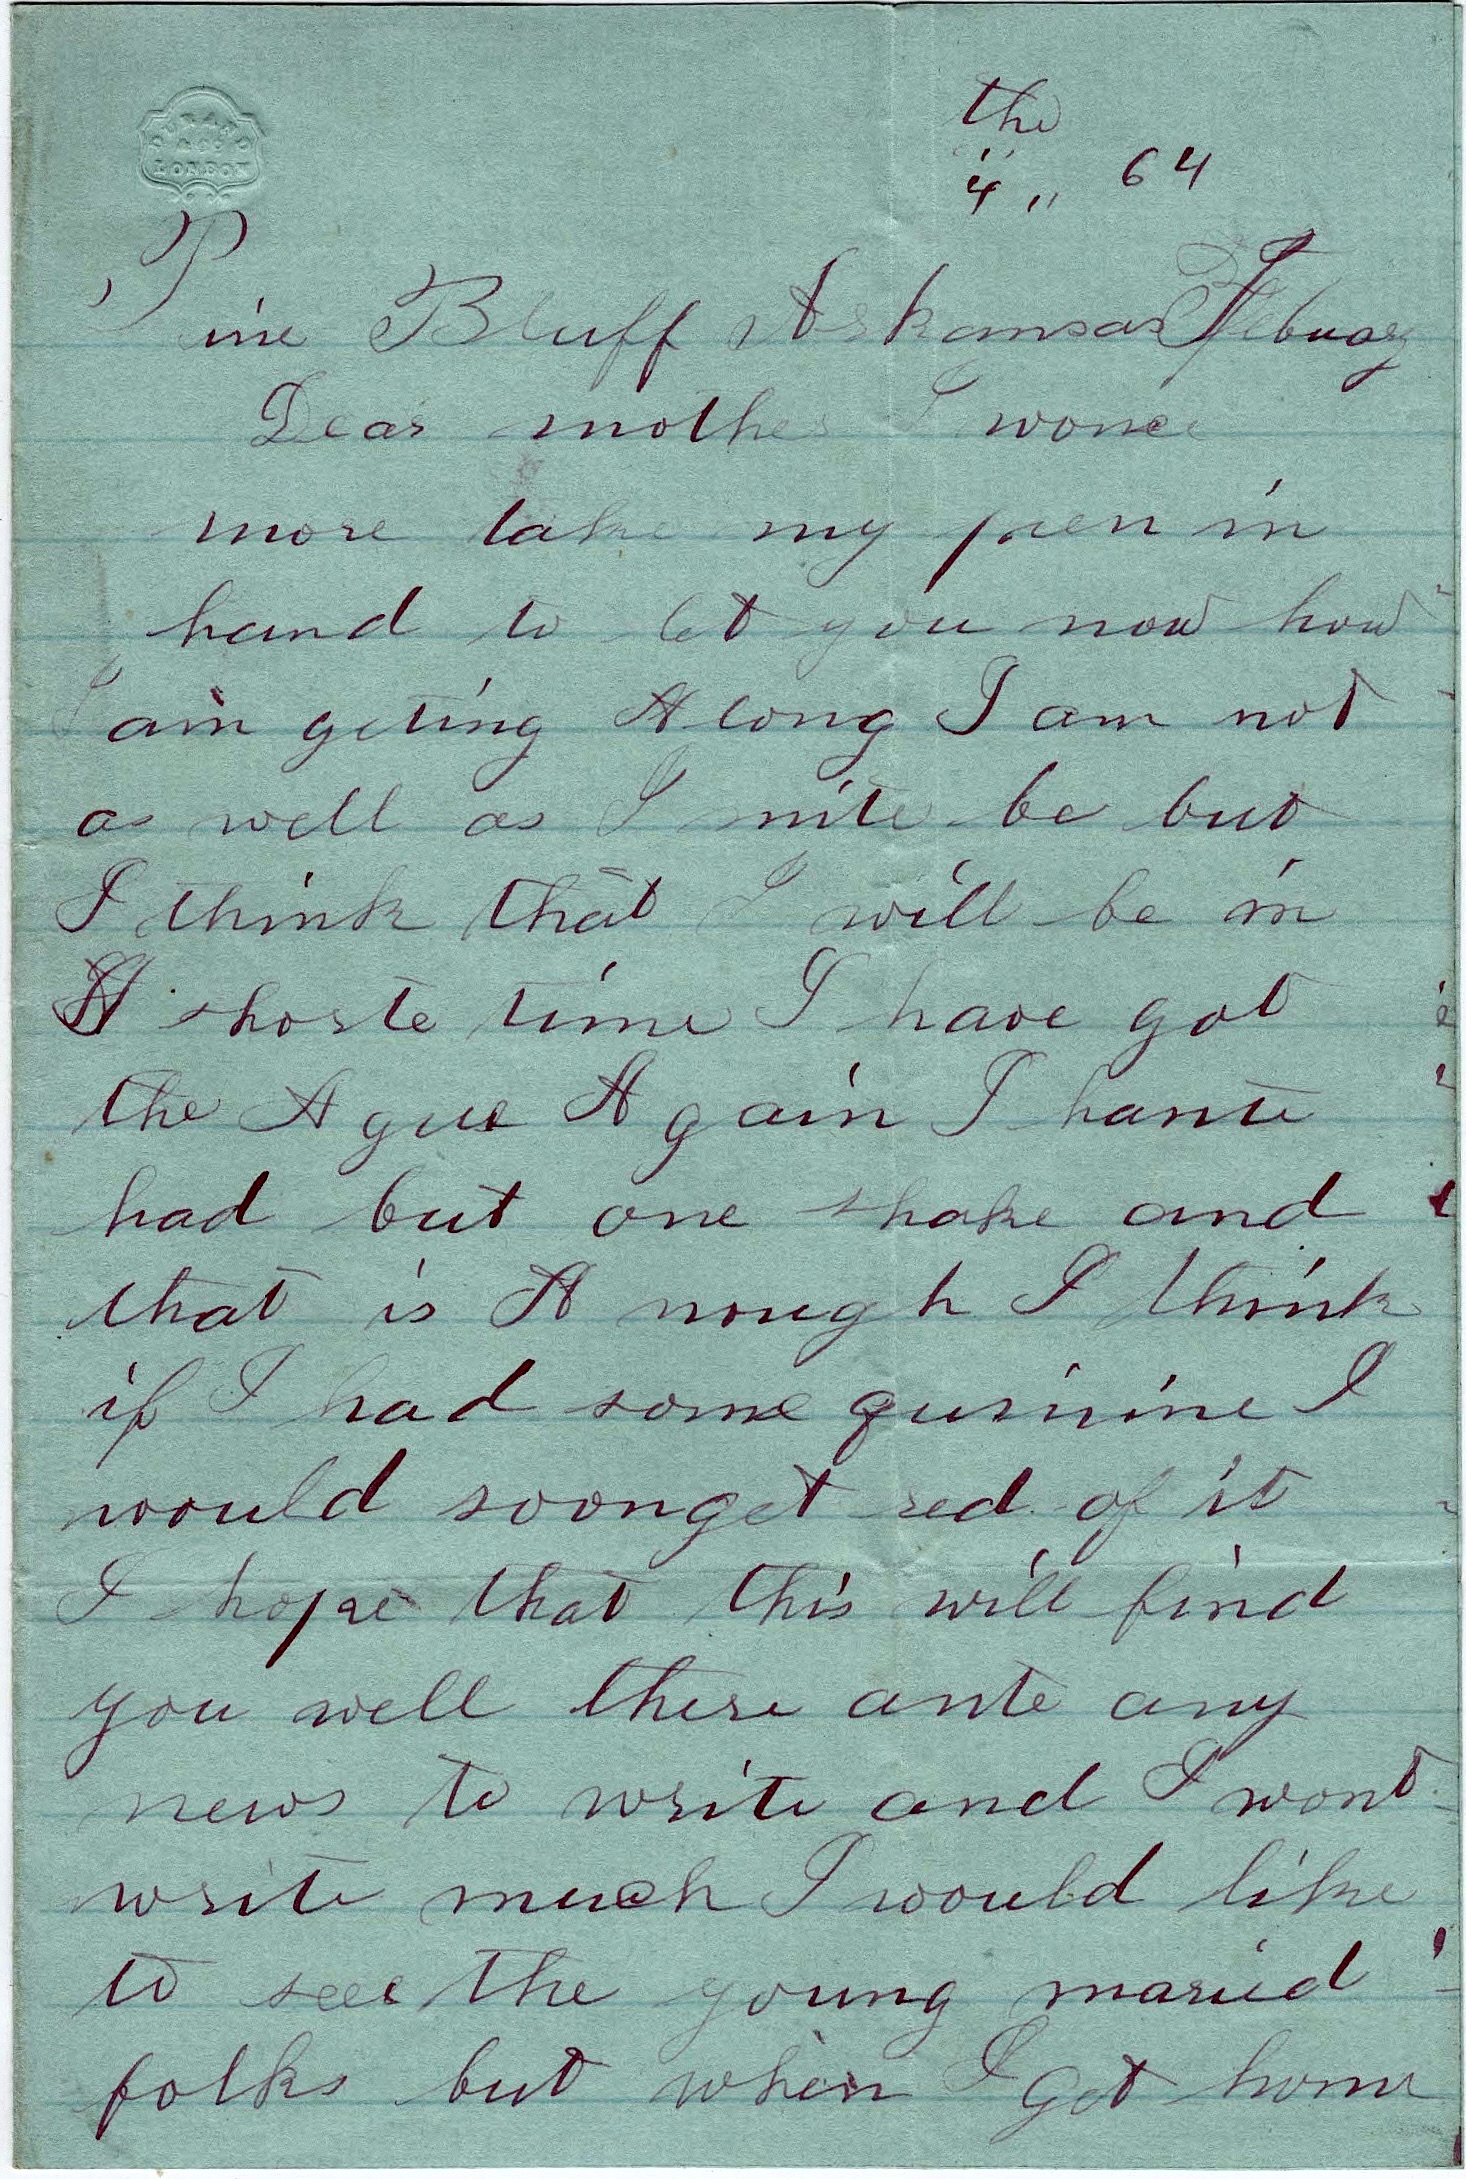 LONDON
the
4 " 64
Pine Bluff Arkansas Febuary
Dear mother I wonce
more take my pen in
hand to let you now how
I am geting A long I am not
as well as I mite be but
I think that I will be in
A shorte time I have got
the A gue A gain I hante
had but one shake and
that is A nough I think
if I had some quinine I
would soon get red of it
I hope that this will find
you well there ante any
news to write and I wont
write much I would like
to see the young maried
folks but when I get home